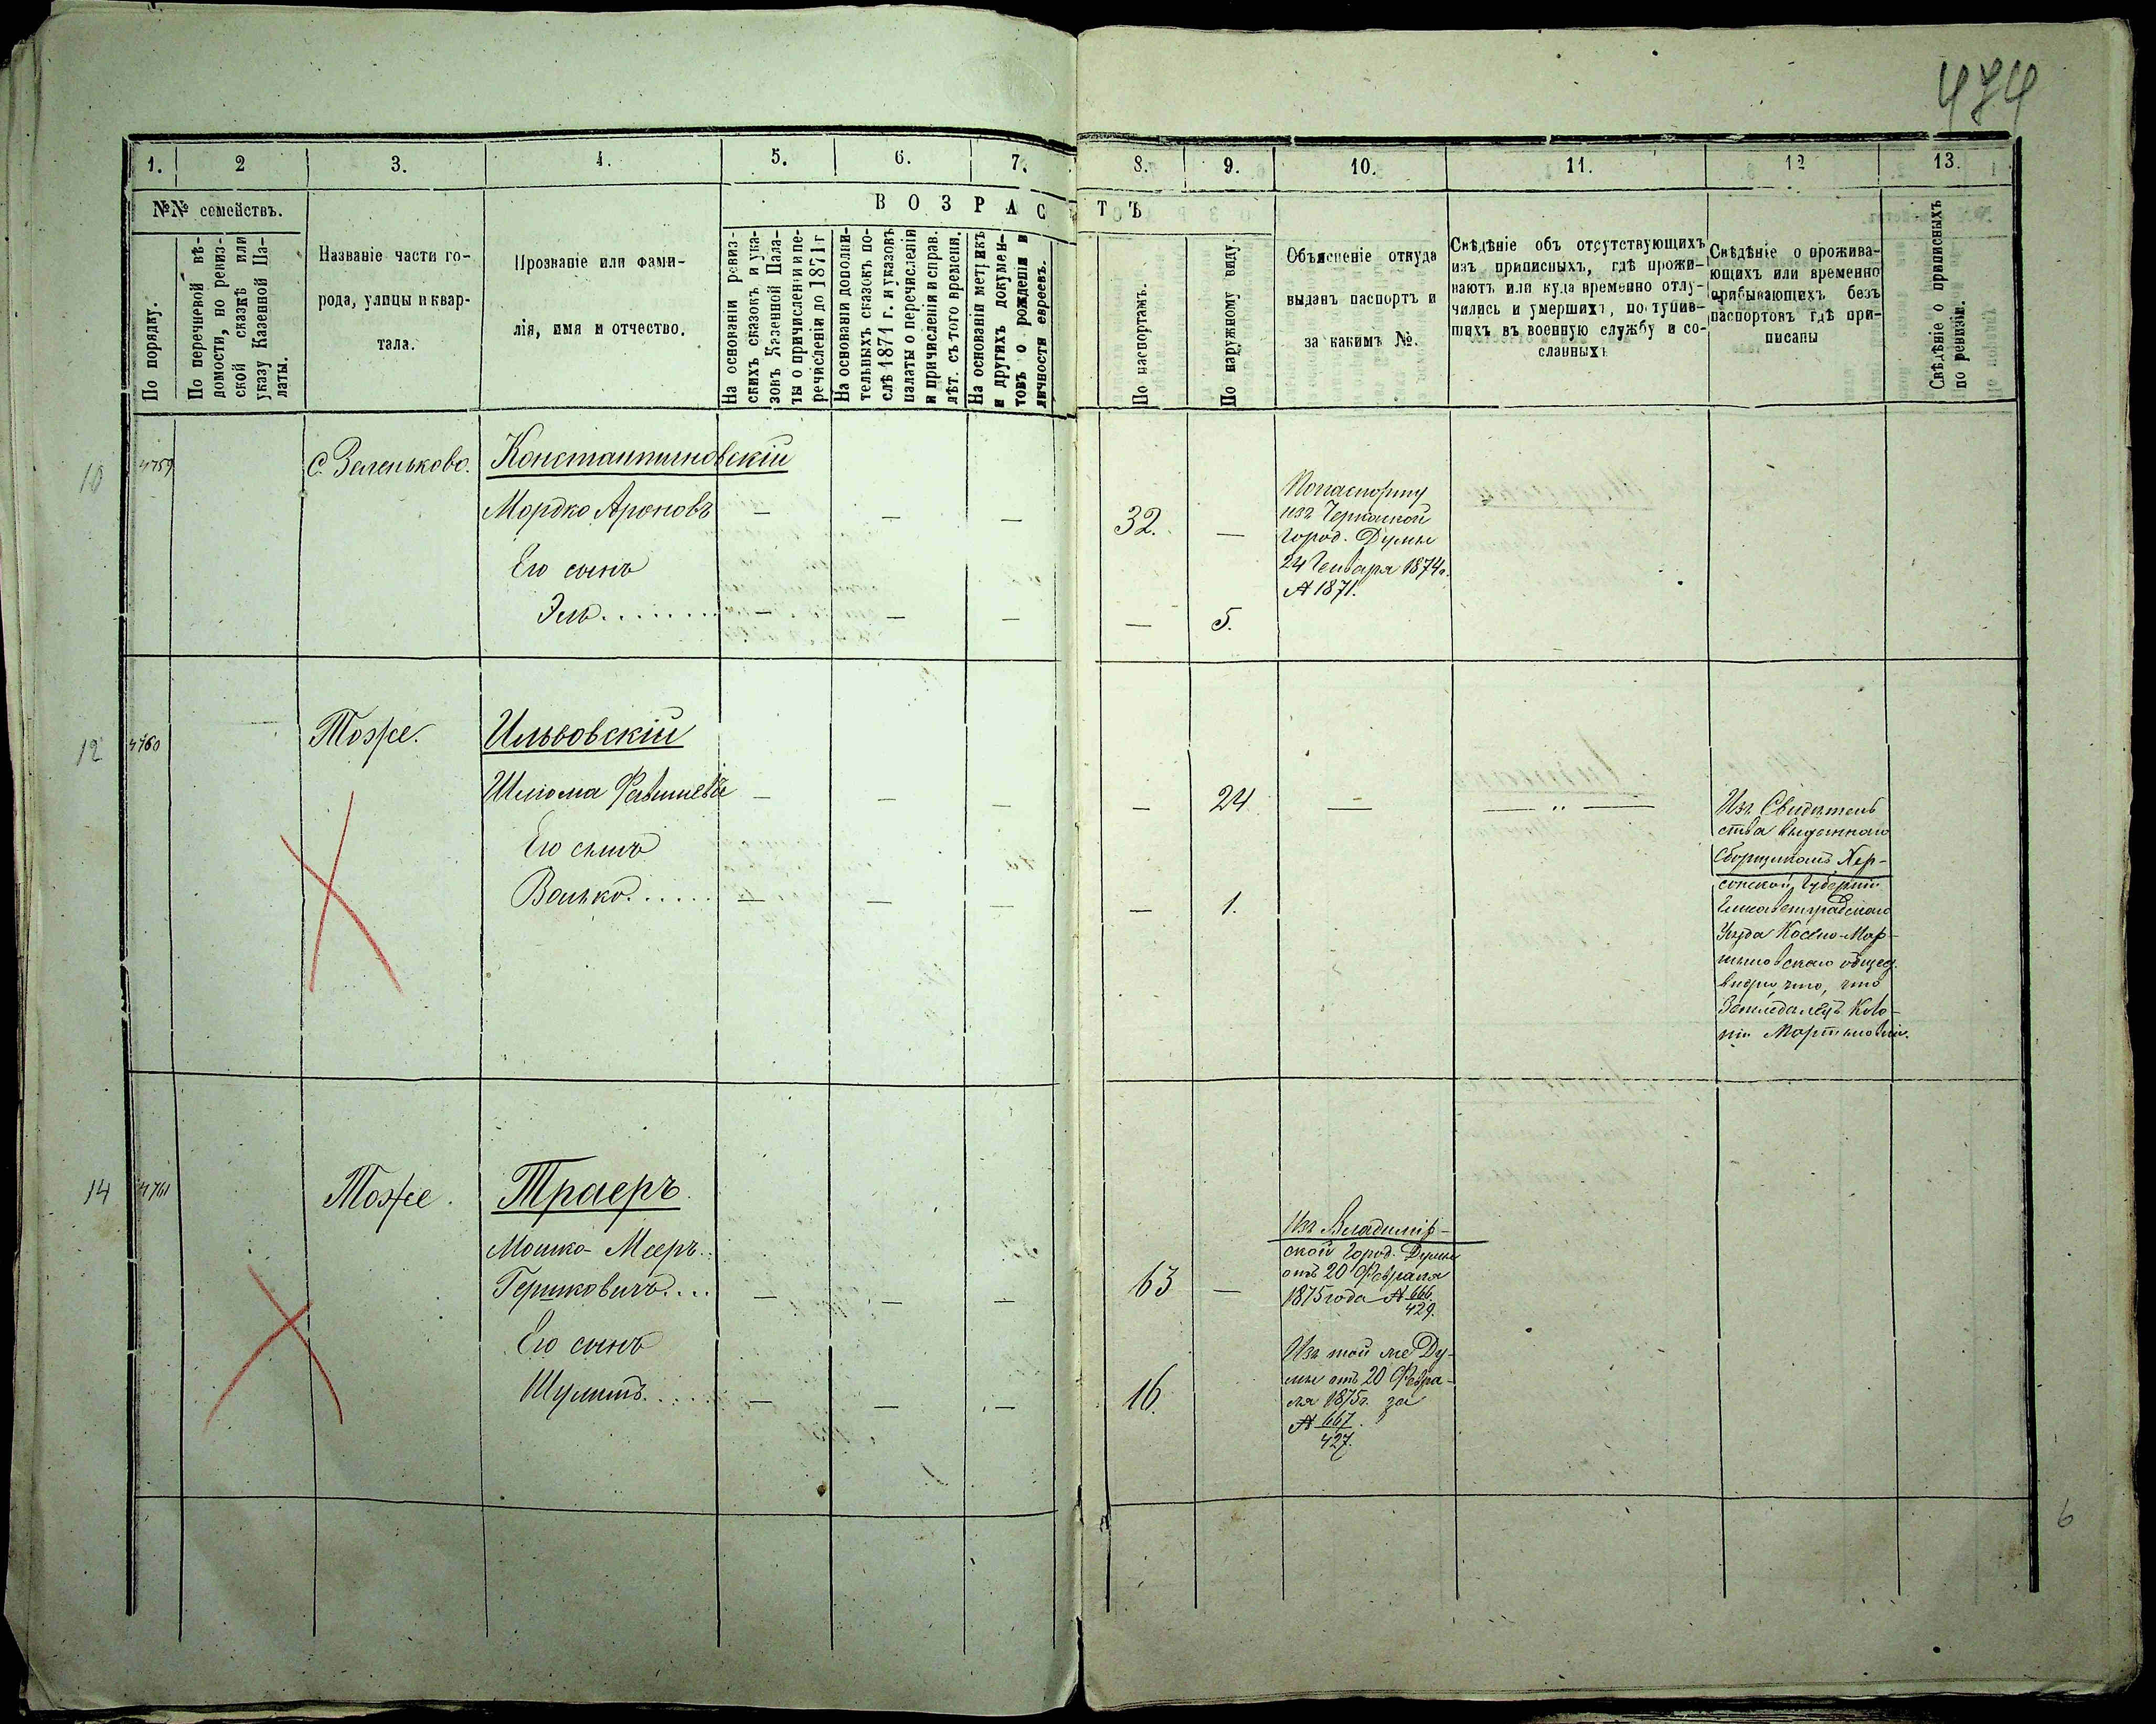 474
1.
2
3.
4.
5.
6.
7.
8.
9.
10.
11.
12
13.
№№ семействъ.
ВОЗРАСТЪ
По порядку.
По перечневой вѣ-
домости, по ревиз-
ской сказкѣ или
указу Казенной Па-
латы.
Названіе части го-
рода, улицы и квар-
тала.
Прозваніе или фами-
лія, имя и отчество.
На основаніи ревиз-
скихъ сказокъ и ука-
зовъ Казенной Пала-
ты о причисленіи и пе-
речисленіи до 1871 г
На основаніи дополни-
тельныхъ сказокъ по-
слѣ 1871 г. и указовъ
палаты о перечисленіи
и причисленіи и справ.
лѣт. съ того времени.
На основаніи метрикъ
и другихъ докумен-
товъ о рожденіи и
личности евреевъ.
По паспортамъ.
По наружному виду.
Объясненіе откуда
выданъ паспортъ и
за какимъ №.
Свѣдѣніе объ отсутствующихъ
изъ приписныхъ, гдѣ прожи-
ваютъ или куда временно отлу-
чились и умершихъ, поступив-
шихъ въ военную службу и со-
сланныхъ
Свѣдѣніе о прожива-
ющихъ или временно
прибывающихъ безъ
паспортовъ гдѣ при-
писаны
Свѣдѣніе о приписныхъ
по ревизіи.
10
4759
С. Зеленьково.
Константиновскій
Мордко Ароновъ — — — 32. —
Его сынъ
Эль........ — — — — 5.
По паспорту
изъ Черкаской
Город. Думы
24 Генваря 1874 г.
№ 1871.
12
4760
Тоже.
Ильвовскій
Шлиома — — — — 24 — — „ —
Его сынъ
Волько...... — — — — 1.
Изъ Свидѣтель
ства выданнаго
Сборщикомъ Хер-
сонской Губерніи
Елисаветградскаго
Уѣзда
общес.
что
Земледѣлецъ Коло-
ніи
14
4761
Тоже.
Траеръ
Мошко-Мееръ..
Гершковичъ.... — — — 63 —
Его сынъ
Шулимъ..... — — — 16.
Изъ Владимір-
ской Город. Думы
отъ 20 Февраля
1875 года № 666.
429.
Изъ той же Ду-
мы отъ 20 Февра-
ля 1875 г. за
№ 667.
427.
6